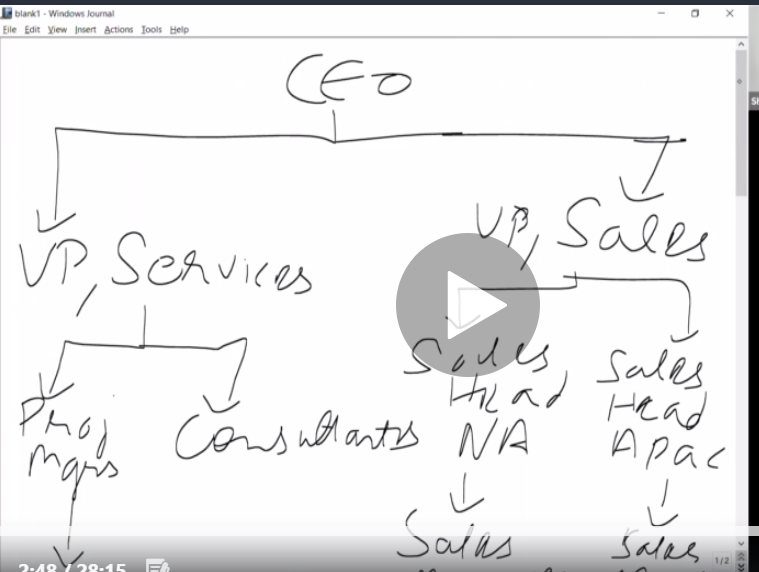 blank1 - Windows Journal
File Edit View Insert Actions Tools Help
CEO
VP, Services
VP, Sales
Proj
Mgrs
Consultants
Sales
Head
NA
Sales
Head
Apac
Sales
Sales
1/2
2:48 / 28:15